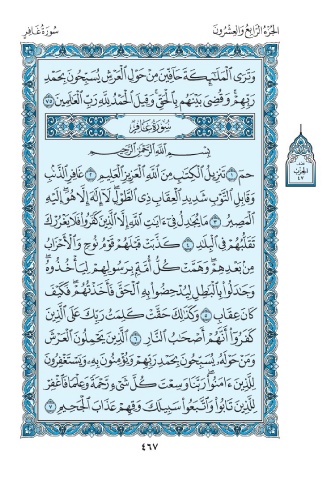 الجزء الرابع والعشرون
سورة غافر
وَتَرَى ٱلْمَلَٰٓئِكَةَ حَآفِّينَ مِنْ حَوْلِ ٱلْعَرْشِ يُسَبِّحُونَ بِحَمْدِ
رَبِّهِمْ وَقُضِىَ بَيْنَهُم بِٱلْحَقِّ وَقِيلَ ٱلْحَمْدُ لِلَّهِ رَبِّ ٱلْعَٰلَمِينَ ٧٥
سورة غافر
بِسْمِ ٱللَّهِ ٱلرَّحْمَٰنِ ٱلرَّحِيمِ
حمٓ ١ تَنزِيلُ ٱلْكِتَٰبِ مِنَ ٱللَّهِ ٱلْعَزِيزِ ٱلْعَلِيمِ ٢ غَافِرِ ٱلذَّنۢبِ
وَقَابِلِ ٱلتَّوْبِ شَدِيدِ ٱلْعِقَابِ ذِى ٱلطَّوْلِ لَآ إِلَٰهَ إِلَّا هُوَ إِلَيْهِ
ٱلْمَصِيرُ ٣ مَا يُجَٰدِلُ فِىٓ ءَايَٰتِ ٱللَّهِ إِلَّا ٱلَّذِينَ كَفَرُوا۟ فَلَا يَغْرُرْكَ
تَقَلُّبُهُمْ فِى ٱلْبِلَٰدِ ٤ كَذَّبَتْ قَبْلَهُمْ قَوْمُ نُوحٍ وَٱلْأَحْزَابُ
مِنۢ بَعْدِهِمْ وَهَمَّتْ كُلُّ أُمَّةٍۭ بِرَسُولِهِمْ لِيَأْخُذُوهُ
وَجَٰدَلُوا۟ بِٱلْبَٰطِلِ لِيُدْحِضُوا۟ بِهِ ٱلْحَقَّ فَأَخَذْتُهُمْ فَكَيْفَ
كَانَ عِقَابِ ٥ وَكَذَٰلِكَ حَقَّتْ كَلِمَتُ رَبِّكَ عَلَى ٱلَّذِينَ
كَفَرُوٓا۟ أَنَّهُمْ أَصْحَٰبُ ٱلنَّارِ ٦ ٱلَّذِينَ يَحْمِلُونَ ٱلْعَرْشَ
وَمَنْ حَوْلَهُۥ يُسَبِّحُونَ بِحَمْدِ رَبِّهِمْ وَيُؤْمِنُونَ بِهِۦ وَيَسْتَغْفِرُونَ
لِلَّذِينَ ءَامَنُوا۟ رَبَّنَا وَسِعْتَ كُلَّ شَىْءٍ رَّحْمَةً وَعِلْمًا فَٱغْفِرْ
لِلَّذِينَ تَابُوا۟ وَٱتَّبَعُوا۟ سَبِيلَكَ وَقِهِمْ عَذَابَ ٱلْجَحِيمِ ٧
الحزب
٤٧
٤٦٧